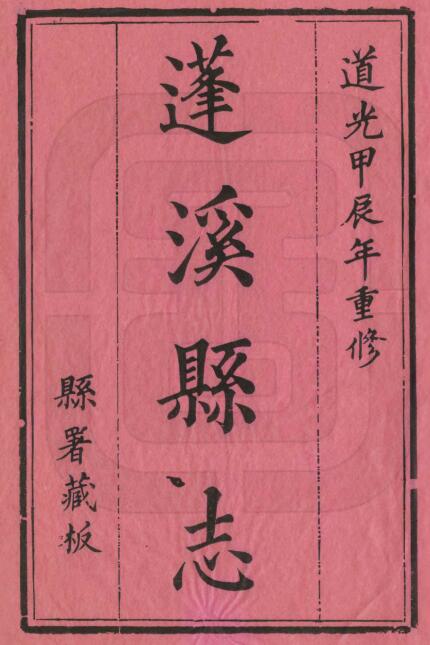 道光甲辰年重修
蓬溪縣志
縣署藏板